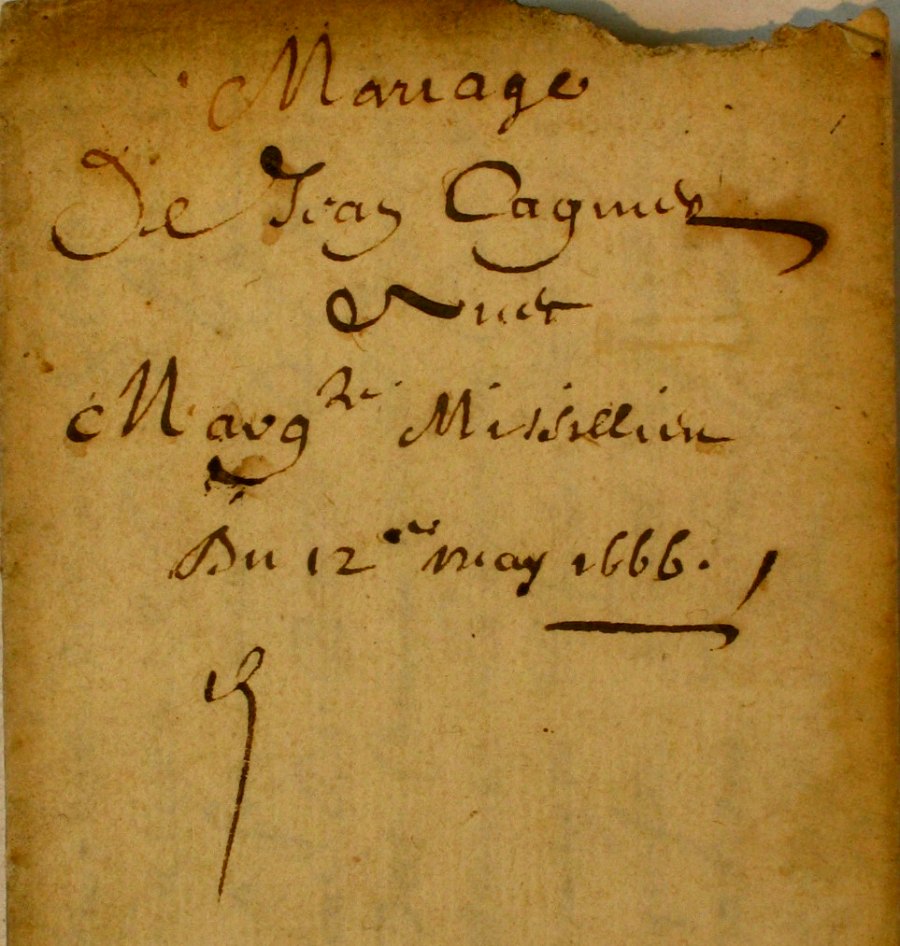 Mariage
De Jean Cagniez
Avec
Margte Missillier
Du 12me may 1666.